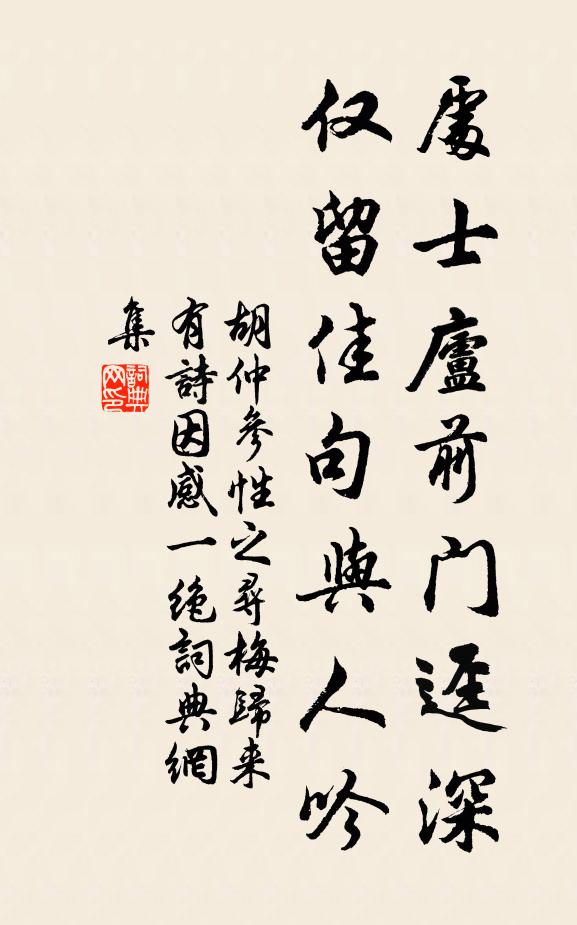 處士廬前門逕深
仅留佳句與人吟
胡仲參性之尋梅歸来
有詩因感一絶詞典網
集
詞典
网印